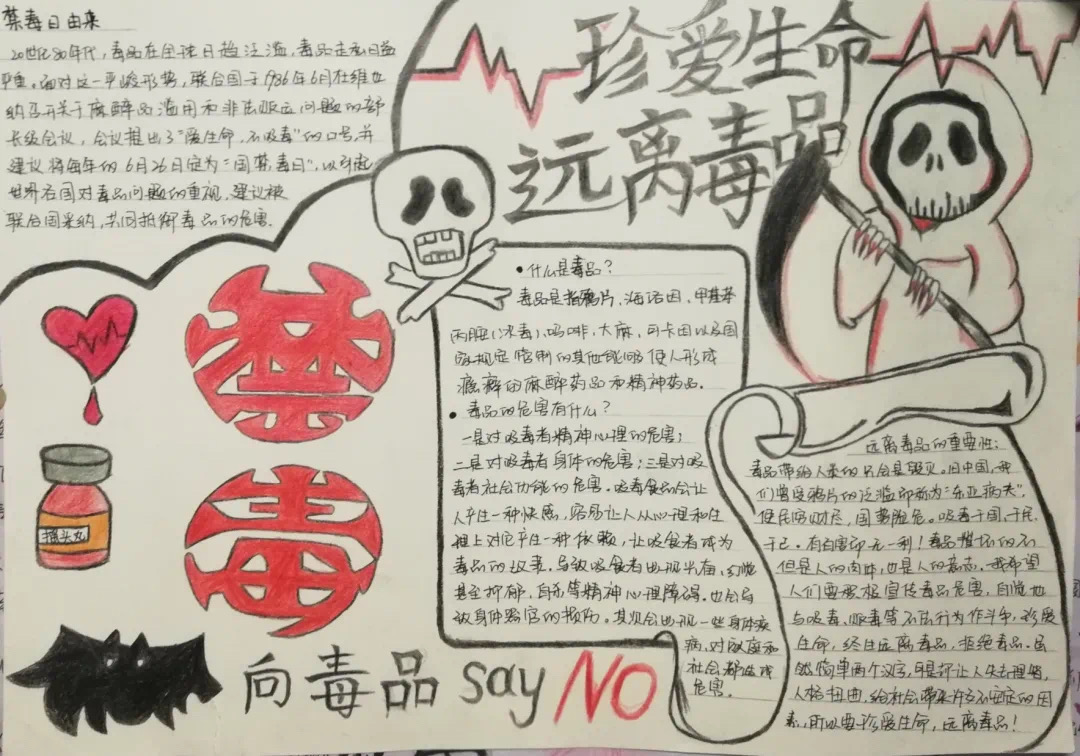 禁毒日由来
20世纪80年代，毒品在全球日趋泛滥，毒品走私日益
严重。面对这一严峻形势，联合国于1986年6月在维也
纳召开关于麻醉品滥用和非法贩运问题的部
长级会议，会议提出了“爱生命，不吸毒”的口号，并
建议将每年的6月26日定为“国禁毒日”，以引起
世界各国对毒品问题的重视，建议被
联合国采纳，共同抵御毒品的危害.
珍爱生命
远离毒品
禁
毒
摇头丸
向毒品say NO
•什么是毒品？
毒品是指鸦片、海洛因、甲基苯
丙胺(冰毒)、吗啡、大麻、可卡因以及国
家规定管制的其他能够使人形成
瘾癖的麻醉药品和精神药品.
•毒品的危害有什么？
一是对吸毒者精神心理的危害；
二是对吸毒者身体的危害；三是对吸
毒者社会功能的危害.吸毒食品会让
人产生一种快感，容易让人从心理和生
理上对它产生一种依赖，让吸食者成为
毒品的奴隶，导致吸食者出现失眠、幻觉
甚至抑郁、自杀等精神心理障碍.也会导
致身体器官的损伤。其次会出现一些身体疾
病，对家庭和
社会都造成
危害.
远离毒品的重要性：
毒品带给人类的只会是毁灭。旧中国，我
们曾受鸦片的泛滥却称为“东亚病夫”.
使民穷财尽，国势危危。吸毒于国，于民，
于己.有百害却无一利！毒品摧坏的不
但是人的肉体，也是人的意志。我希望
人们要积极宣传毒品危害，自觉地
与吸毒、贩毒等不法行为作斗争，珍爱
生命，终生远离毒品，拒绝毒品.虽
然简单两个汉字，可是却让人失去理智，
人格扭曲，给社会带来许多不安定的因
素，所以要珍爱生命，远离毒品！